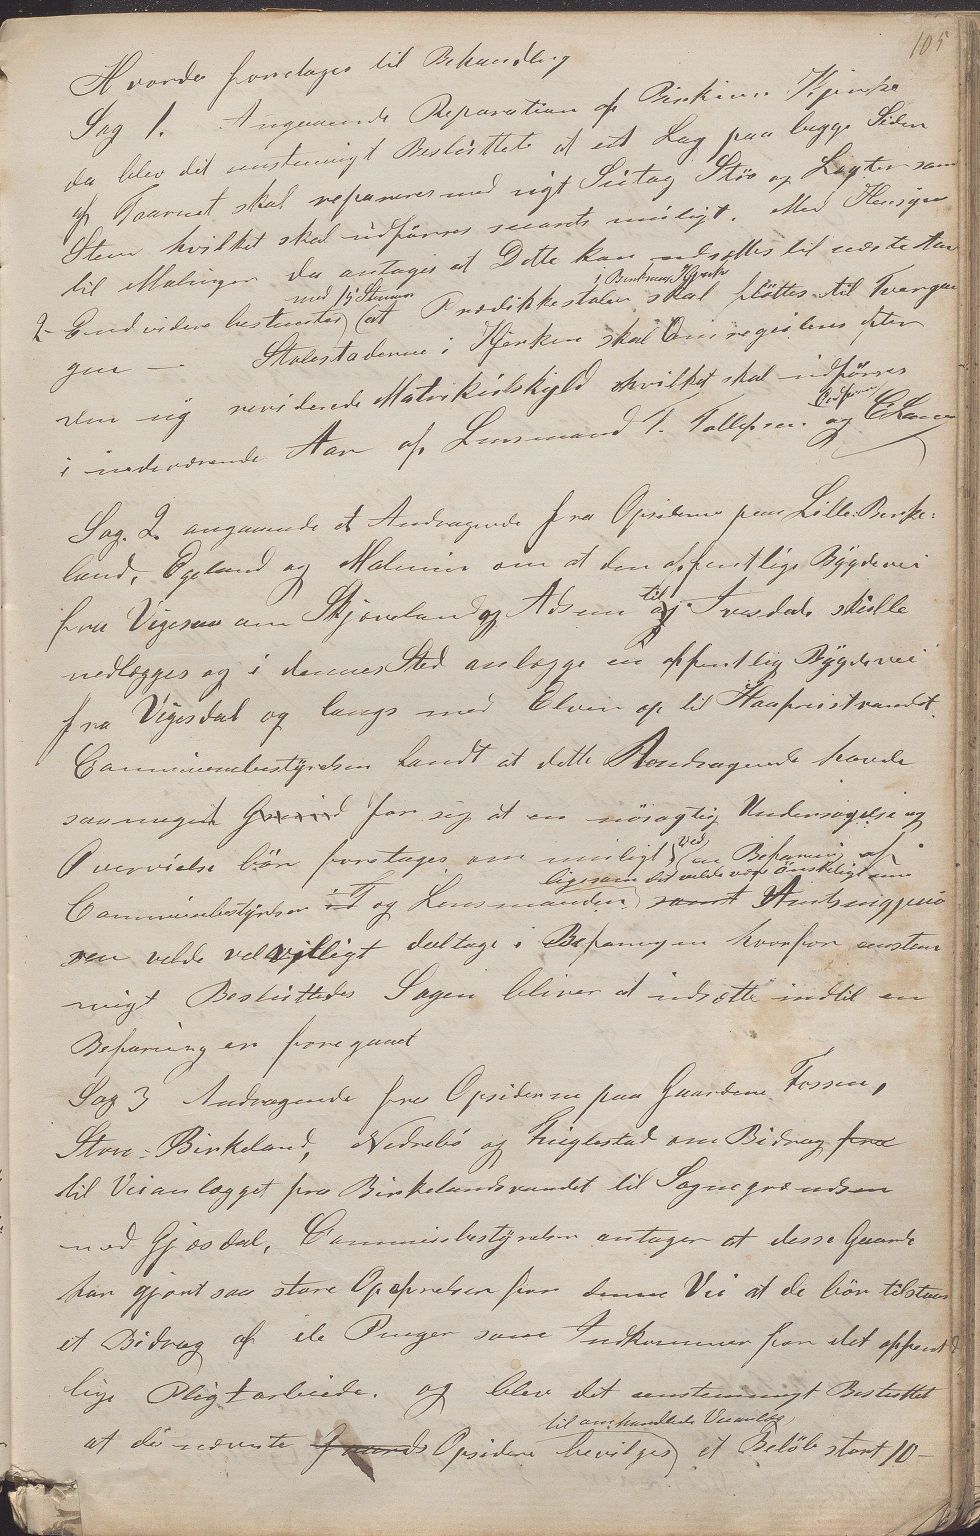 105
Hvorda foretages til Behandling
Sag 1. Angaaende Reparation af Birkime Kjerke
da blev det enstemmigt Besluttet at ett Lag paa begge Siden
af Taarnet skal repareres med nigt Sutag Stöv og Legter som
Steen hvilket skal udförres snarts muligt. Med Hensyn
til Malningen da antages at Dette kan udsættes til næste Aar
2- End videre bestuttes med 15 Stemmer at Prædikkestolen i Birkrems Kjerke skal flöttes til Tvergan
gen — Stolestaderne i Kjerken skal Omreguleres efter
den nÿ reviderede Matrikulskyld hvilket skal udförres
i indeværende Aar af Lensmand T. Tollefsen og
Sag. 2. angaaende et Andragende fra Opsiderne paa Lille Birke-
land, Egeland og Malmin om at den offentlige Bÿgdevei
fra Vigesaa om Skjæveland og Adsen til Ivesdal skulle
nedlægges og i dennes Sted anlægge en offentlig Bÿgdevei
fra Vigesdal og langs med Elven op til Haafristvandet.
Communebestÿrelsen fandt at dette Aandragende havde
saameget Grund for sig at en nöiagtig Undersögelse og
Overveielse bör foretages om muligt ved en Befaring af
Communebestÿrelsen og Lensmanden ligesom det vilde være önskeligt om Amtsingeniö
ren vilde velvilligt deltage i Befaringen hvorfor enstem
migt Besluttedes Sagen bliver at udsætte indtil en
Befaring er foregaaet
Sag 3 Andragende fra Opsiderne paa Gaardene Fossen,
Store-Birkeland, Nedrebö og Tingelstad om Bidrag fra
til Veianlægget fra Birkelandsvandet til Sognegrændsen
med Gjæsdal. Communebestÿrelsen antager at desse Gaarde
har gjort saa store Opofrelser for denne Vei at de bör tilstaaes
et Bidrag af de Penger som Indkommer for det offent
lige Pligtarbeide. og blev det enstemmigt Besluttet
at de nævnte Gaards Opsidere bevilges til omhandlede Veianlæg et Belöb stort 10-